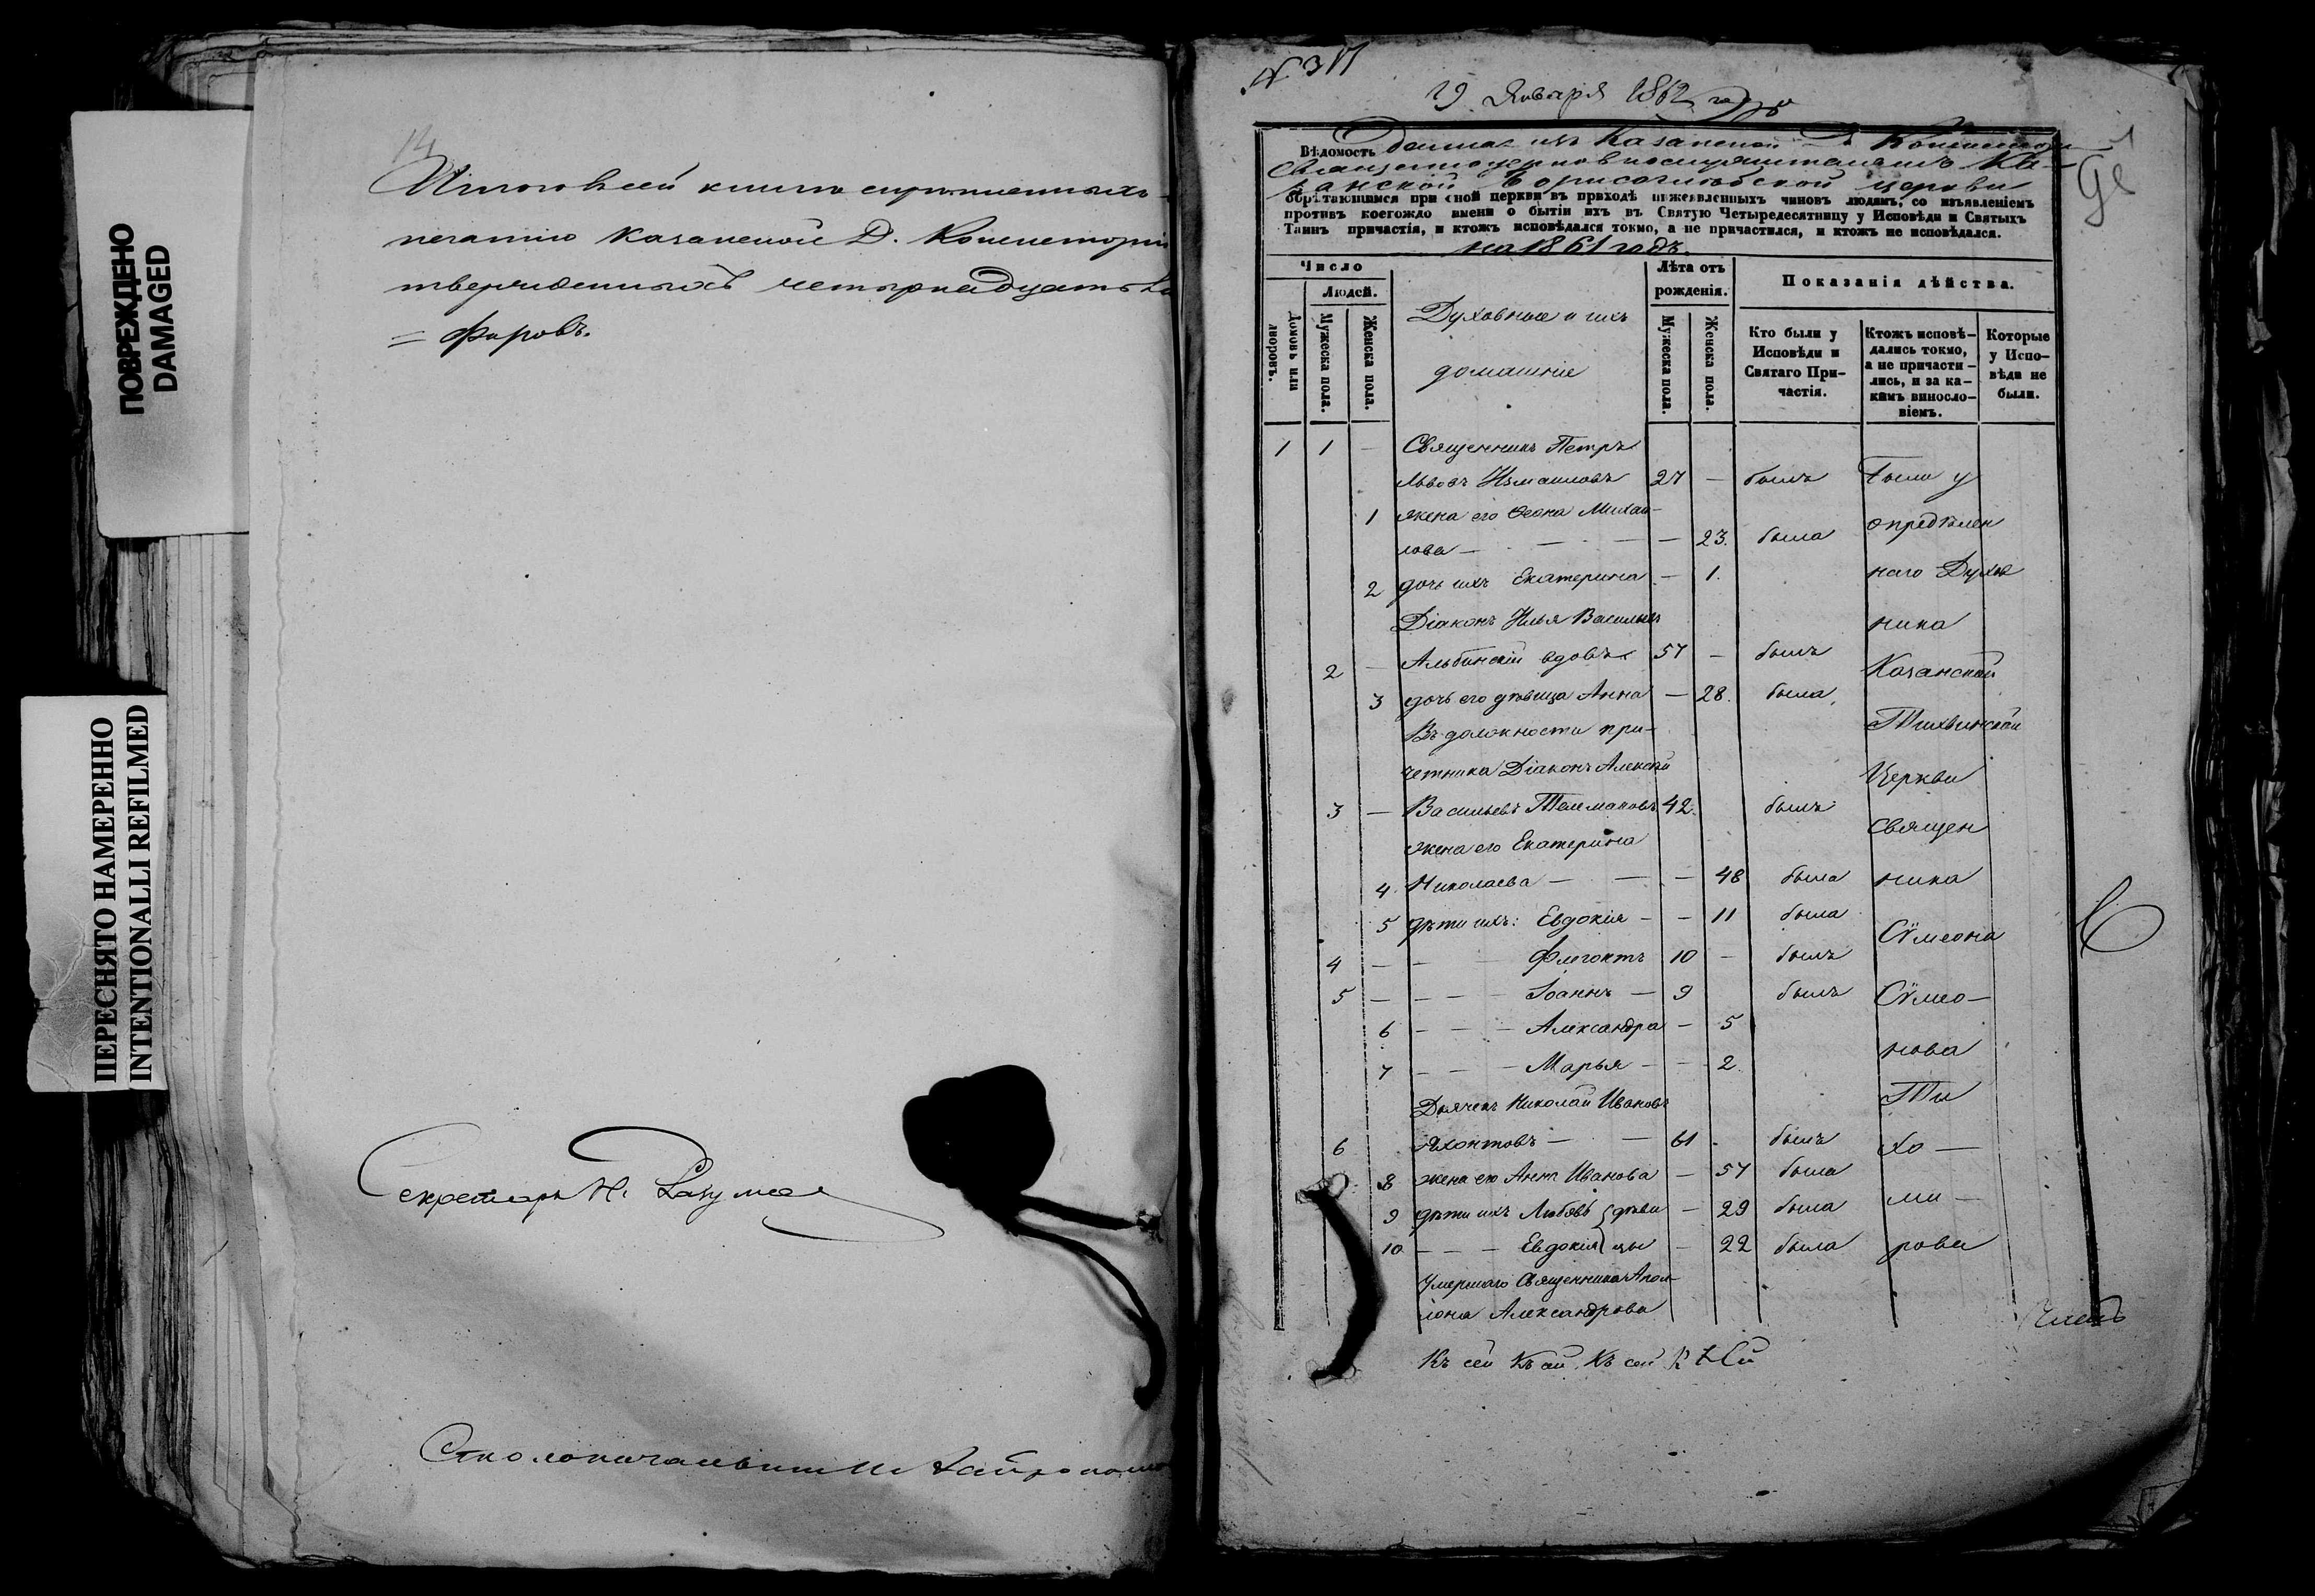 ПОВРЕЖДЕНО
DAMAGED
ПЕРЕСНЯТО НАМЕРЕННО
INTENTIONALLI REFILMED
14
Итого в сей книге скрѣпленныхъ
печатію Казанской Д. Консисторіи
твержденныхъ четырнадцать
Секретарь Н.
Столоначальникъ
№ 317
19 Января 1862 года
Вѣдомость данная изъ Казанской Д. Консисторіи
Священноцерковнослужителямъ Ка-
занской Борисоглѣбской церкви
обрѣтающимся при оной церкви въ приходѣ нижеявленныхъ чиновъ людямъ, со изъявленіемъ
противъ коегождо имени о бытіи ихъ въ Святую Четыредесятницу у Исповѣди и Святыхъ
Таинъ причастія, и ктожъ исповѣдался токмо, а не причастился, и ктожъ не исповѣдался.
на 1861 годъ.
Число
Людей.
Домовъ или дворовъ.
Мужеска пола.
Женска пола.
Духовные и ихъ
домашніе
Лѣта отъ рожденія.
Мужеска пола.
Женска пола.
Показанія дѣйства.
Кто были у Исповѣди и Святаго Причастія.
Ктожъ исповѣдались токмо, а не причастились, и за какимъ винословіемъ.
Которые у Исповѣди не были.
1 1 — Священникъ Петръ
Львовъ Измаиловъ 27 — былъ Были у
1 жена его Ѳеона Михаи-
лова — — — — 23. была опредѣлен
2 дочь ихъ Екатерина — 1. наго Духов
Діаконъ Илья Васильевъ ника
2 — Альбинскій вдовъ 57 — былъ Казанской
3 дочь его дѣвица Анна — 28. была Тихвинской
Въ должности при-
четника Діаконъ Алексѣй Церкви
3 — Васильевъ Талемаковъ 42. былъ Священ
жена его Екатерина
4. Николаева — — — 48 была ника
5 дѣти ихъ: Евдокія — — 11 была Сѵмеона
4 — — Флегонтъ 10 — былъ
5 — — — Іоаннъ — 9 былъ Сѵмео—
6 — — — Александра — 5
7 — — — Марья — — 2 нова
Дьячекъ Николай Ивановъ Ти
6 Яхонтовъ — — 61 - былъ хо —
8 жена его Анна Иванова — 57 была
9 дѣти ихъ Любовь } дѣви — 29 была ми —
10 — — — Евдокія } цы — 22 была рова
Умершаго Священника Апол-
лона Александрова
Къ сей Къ сей Къ сей